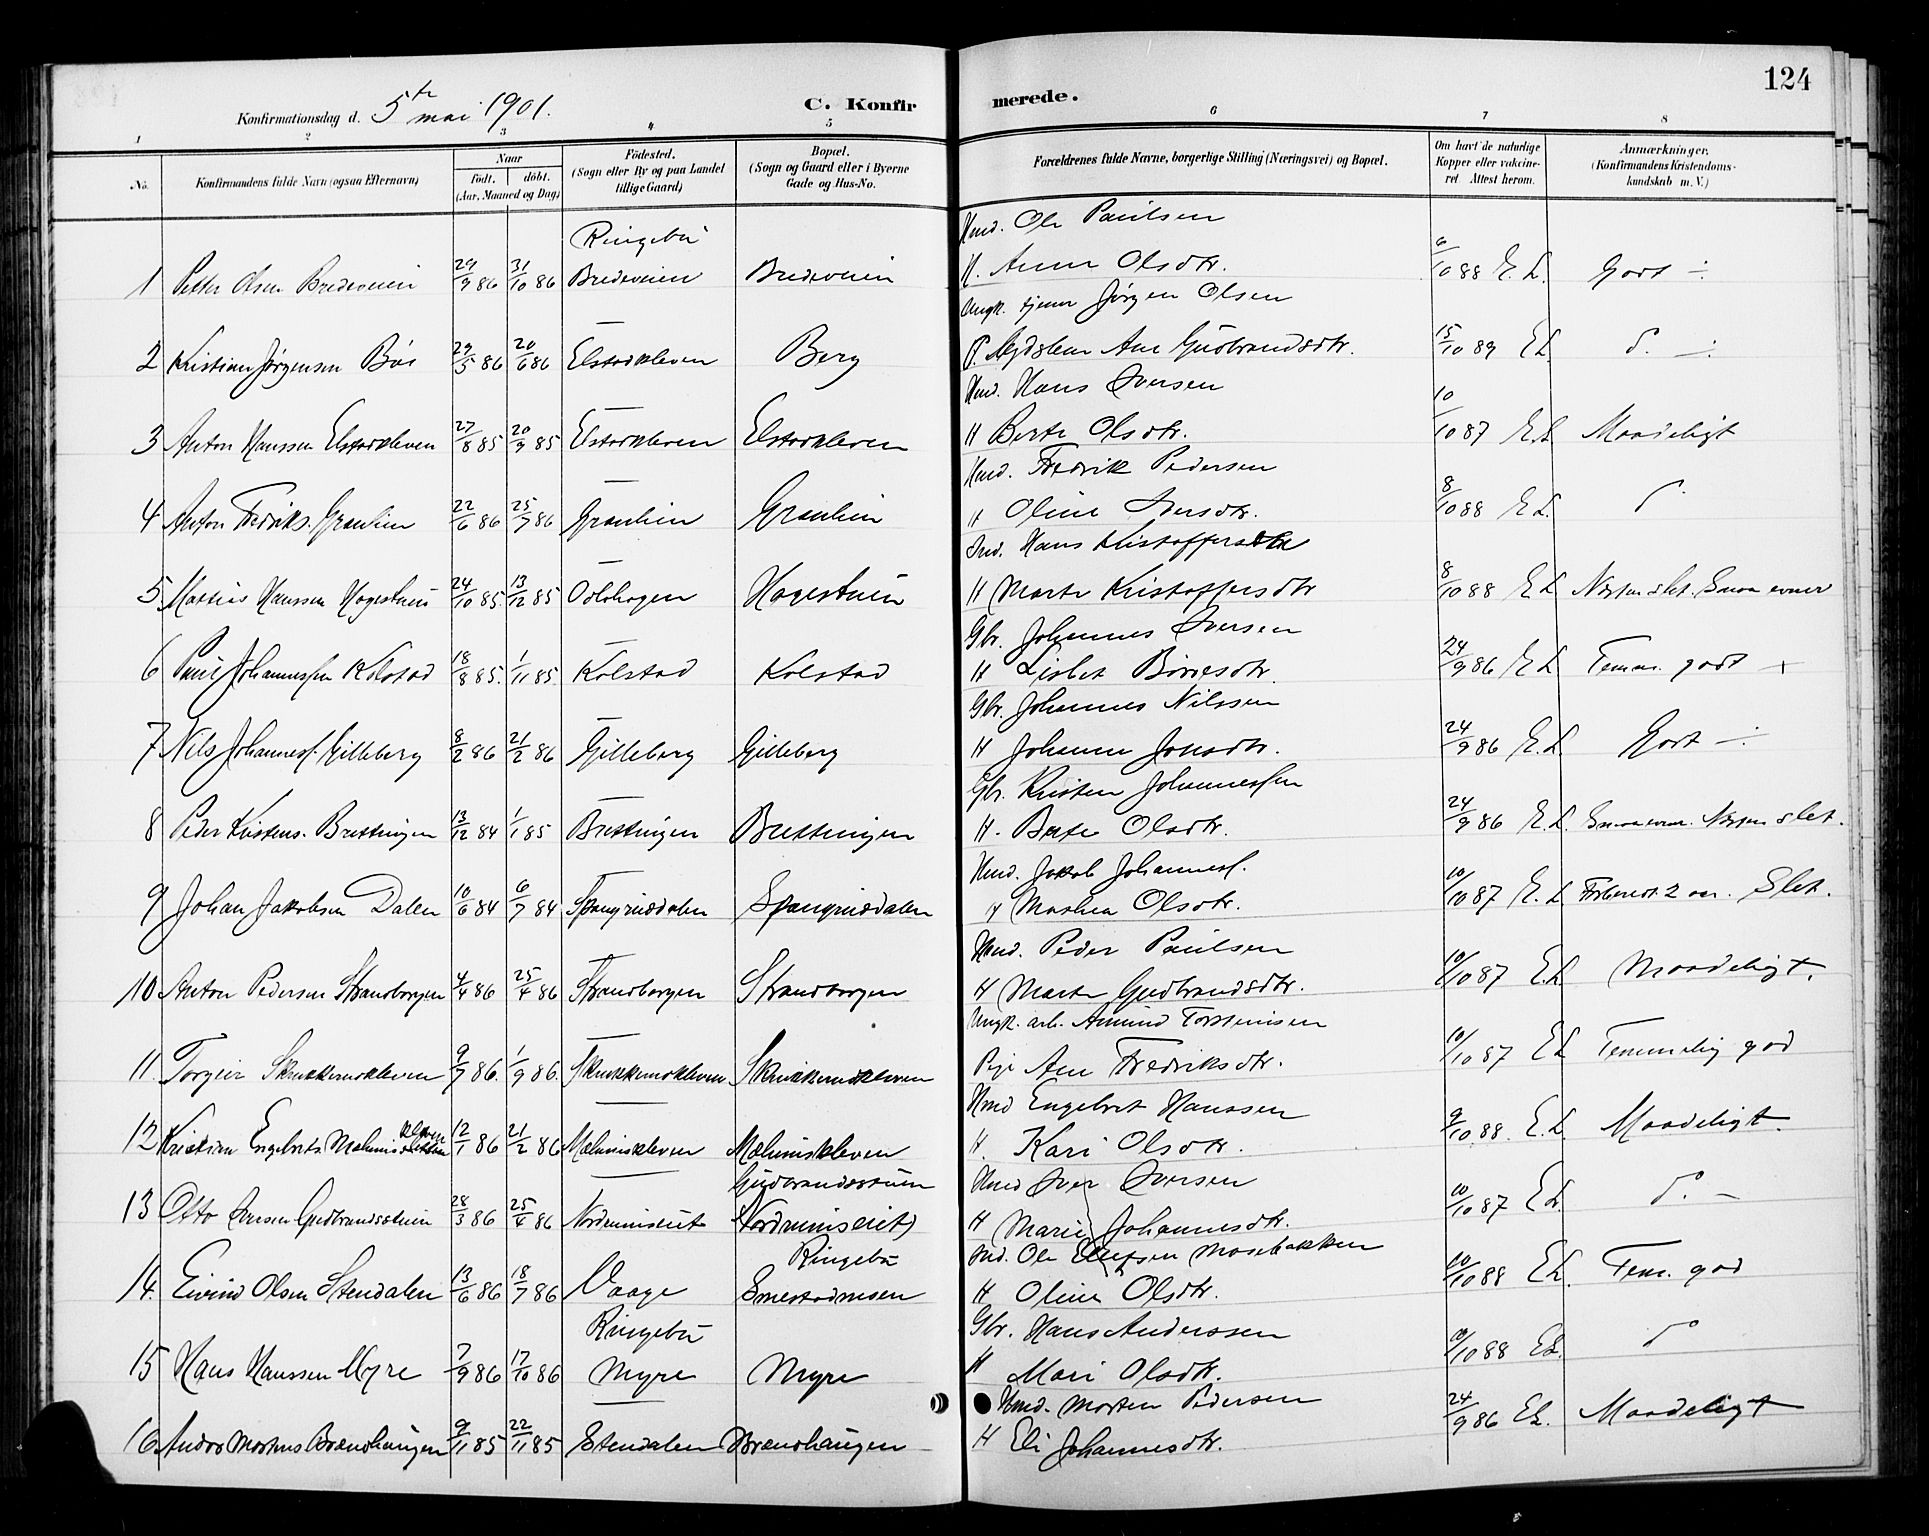 124
Konfirmationsdag d. 5te mai 1901.
C. Konfir
merede.
1 2 3 4 5 6 7 8
No.
Konfirmandens fulde Navn (ogsaa Efternavn)
Naar
födt. döbt.
(Aar, Maaned og Dag)
Födested.
(Sogn eller By og paa Landet
tillige Gaard)
Bopæl.
(Sogn og Gaard eller i Byerne
Gade og Hus-No.
Forældrenes fulde Navne, borgerlige Stilling (Næringsvei) og Bopæl.
Om havt de naturlige
Kopper eller vakcine-
ret Attest herom.
Anmærkninger.
(Konfirmandens Kristendoms-
kundskab m. V.)
Ringebu Hmd. Ole Paulsen
1 Petter Olsen Bredeveien 29/9 86 31/10 86 Bredeveien Bredeveien H. Anne Olsdtr. 6/10 88 E. L. Godt ÷
Ungk. tjener Jörgen Olsen
2 Kristian Jörgensen Böe 29/5 86 20/6 86 Elstadkleven Berg P. Ane Gudbrandsdtr. 15/10 89 E L. d. ÷
Hmd. Hans Iversen
3 Anton Hanssen Elstadkleven 27/8 85 20/9 85 Elstadkleven Elstadkleven H Berte Olsdtr. 10/10 87 E. L Maadeligt
Hmd. Fredrik Pedersen
4 Anton Fredriks. Granlien 22/6 86 25/7 86 Granlien Granlien H Oline Iversdtr. 8/10 88 E L. d
Ind. Hans Kristoffersen
5 Mattias Hanssen Hagestuen 24/10 85. 13/12 85 Odolhagen Hagestuen H Marte Kristoffersdtr 8/10 88 E L Næsten slet. Smaa evner
Gbr. Johannes Iversen
6 Paul Johannessen Kolstad 18/8 85. 1/11 85. Kolstad Kolstad H Lisbet 24/9 86 E L Temm. godt +
Gbr. Johannes Nilssen
7 Nils Johannesf. Gilleberg 8/2 86 21/2 86 Gilleberg Gilleberg H Johanne Jonsdtr. 24/9 86 E. L Godt ÷
Gbr. Kristen Johannessen
8 Peder Kristens. Brettingen 13/12 84 1/1 85 Brettingen Brettingen H. Olsdtr. 24/9 86 E. L. Smaa evner. Næsten slet.
Hmd. Jakob Johannesf.
9 Johan Jakobsen Dalen 10/6 84 6/7 84 Spangrudsdalen Spangrudsdalen H Mathea Olsdtr. 10/10 87 E. L Forberedt 2 aar. Slet.
Hmd. Peder Paulsen
10 Anton Pedersen Strandborgen 4/4 86 25/4 86 Strandborgen Strandborgen H Marte Gudbrandsdtr. 10/10 87 E. L Maadeligt.
Ungk. arb. Amund Torsteinsen
11. Torgeir Skrukkerudskleven 9/7 86. 1/9 86. Skrukkerudskleven Skrukkerudskleven Pige Ane Fredriksdtr. 10/10 87 E L Temmelig god
Hmd Engebret Hanssen
12 Kristian Engebrets. Mælumskleven 12/1 86 21/2 86 Mælumskleven Mælumskleven H. Kari Olsdtr. 9/10 88. E. L. Maadeligt.
Gudbrandsstuen Hmd Iver Iversen
13 Otto Iversen Gudbrandsstuen 28/3 86 25/4 86 Nordrumseiet (Nordrumseiet) H Marie Johannesdtr. 10/10 87 E L d. –
Ringebu Ind. Ole Ellefsen Mosebakken
14. Eivind Olsen Stendalen 13/6 86 18/7 86 Vaage Smestadmoen H Oline Olsdtr. 10/10 88 E L. Tem. god
Ringebu Gbr. Hans Anderssen
15 Hans Hanssen Myre 7/9 86 17/10 86 Myre Myre H Mari Olsdtr. 9/10 88 E L. d
Hmd. Morten Pedersen
16. Andr. Mortens Brændhaugen 9/11 85 22/11 85 Stendalen Brændhaugen H Eli Johannesdtr. 24/9 86 E L. Maadeligt